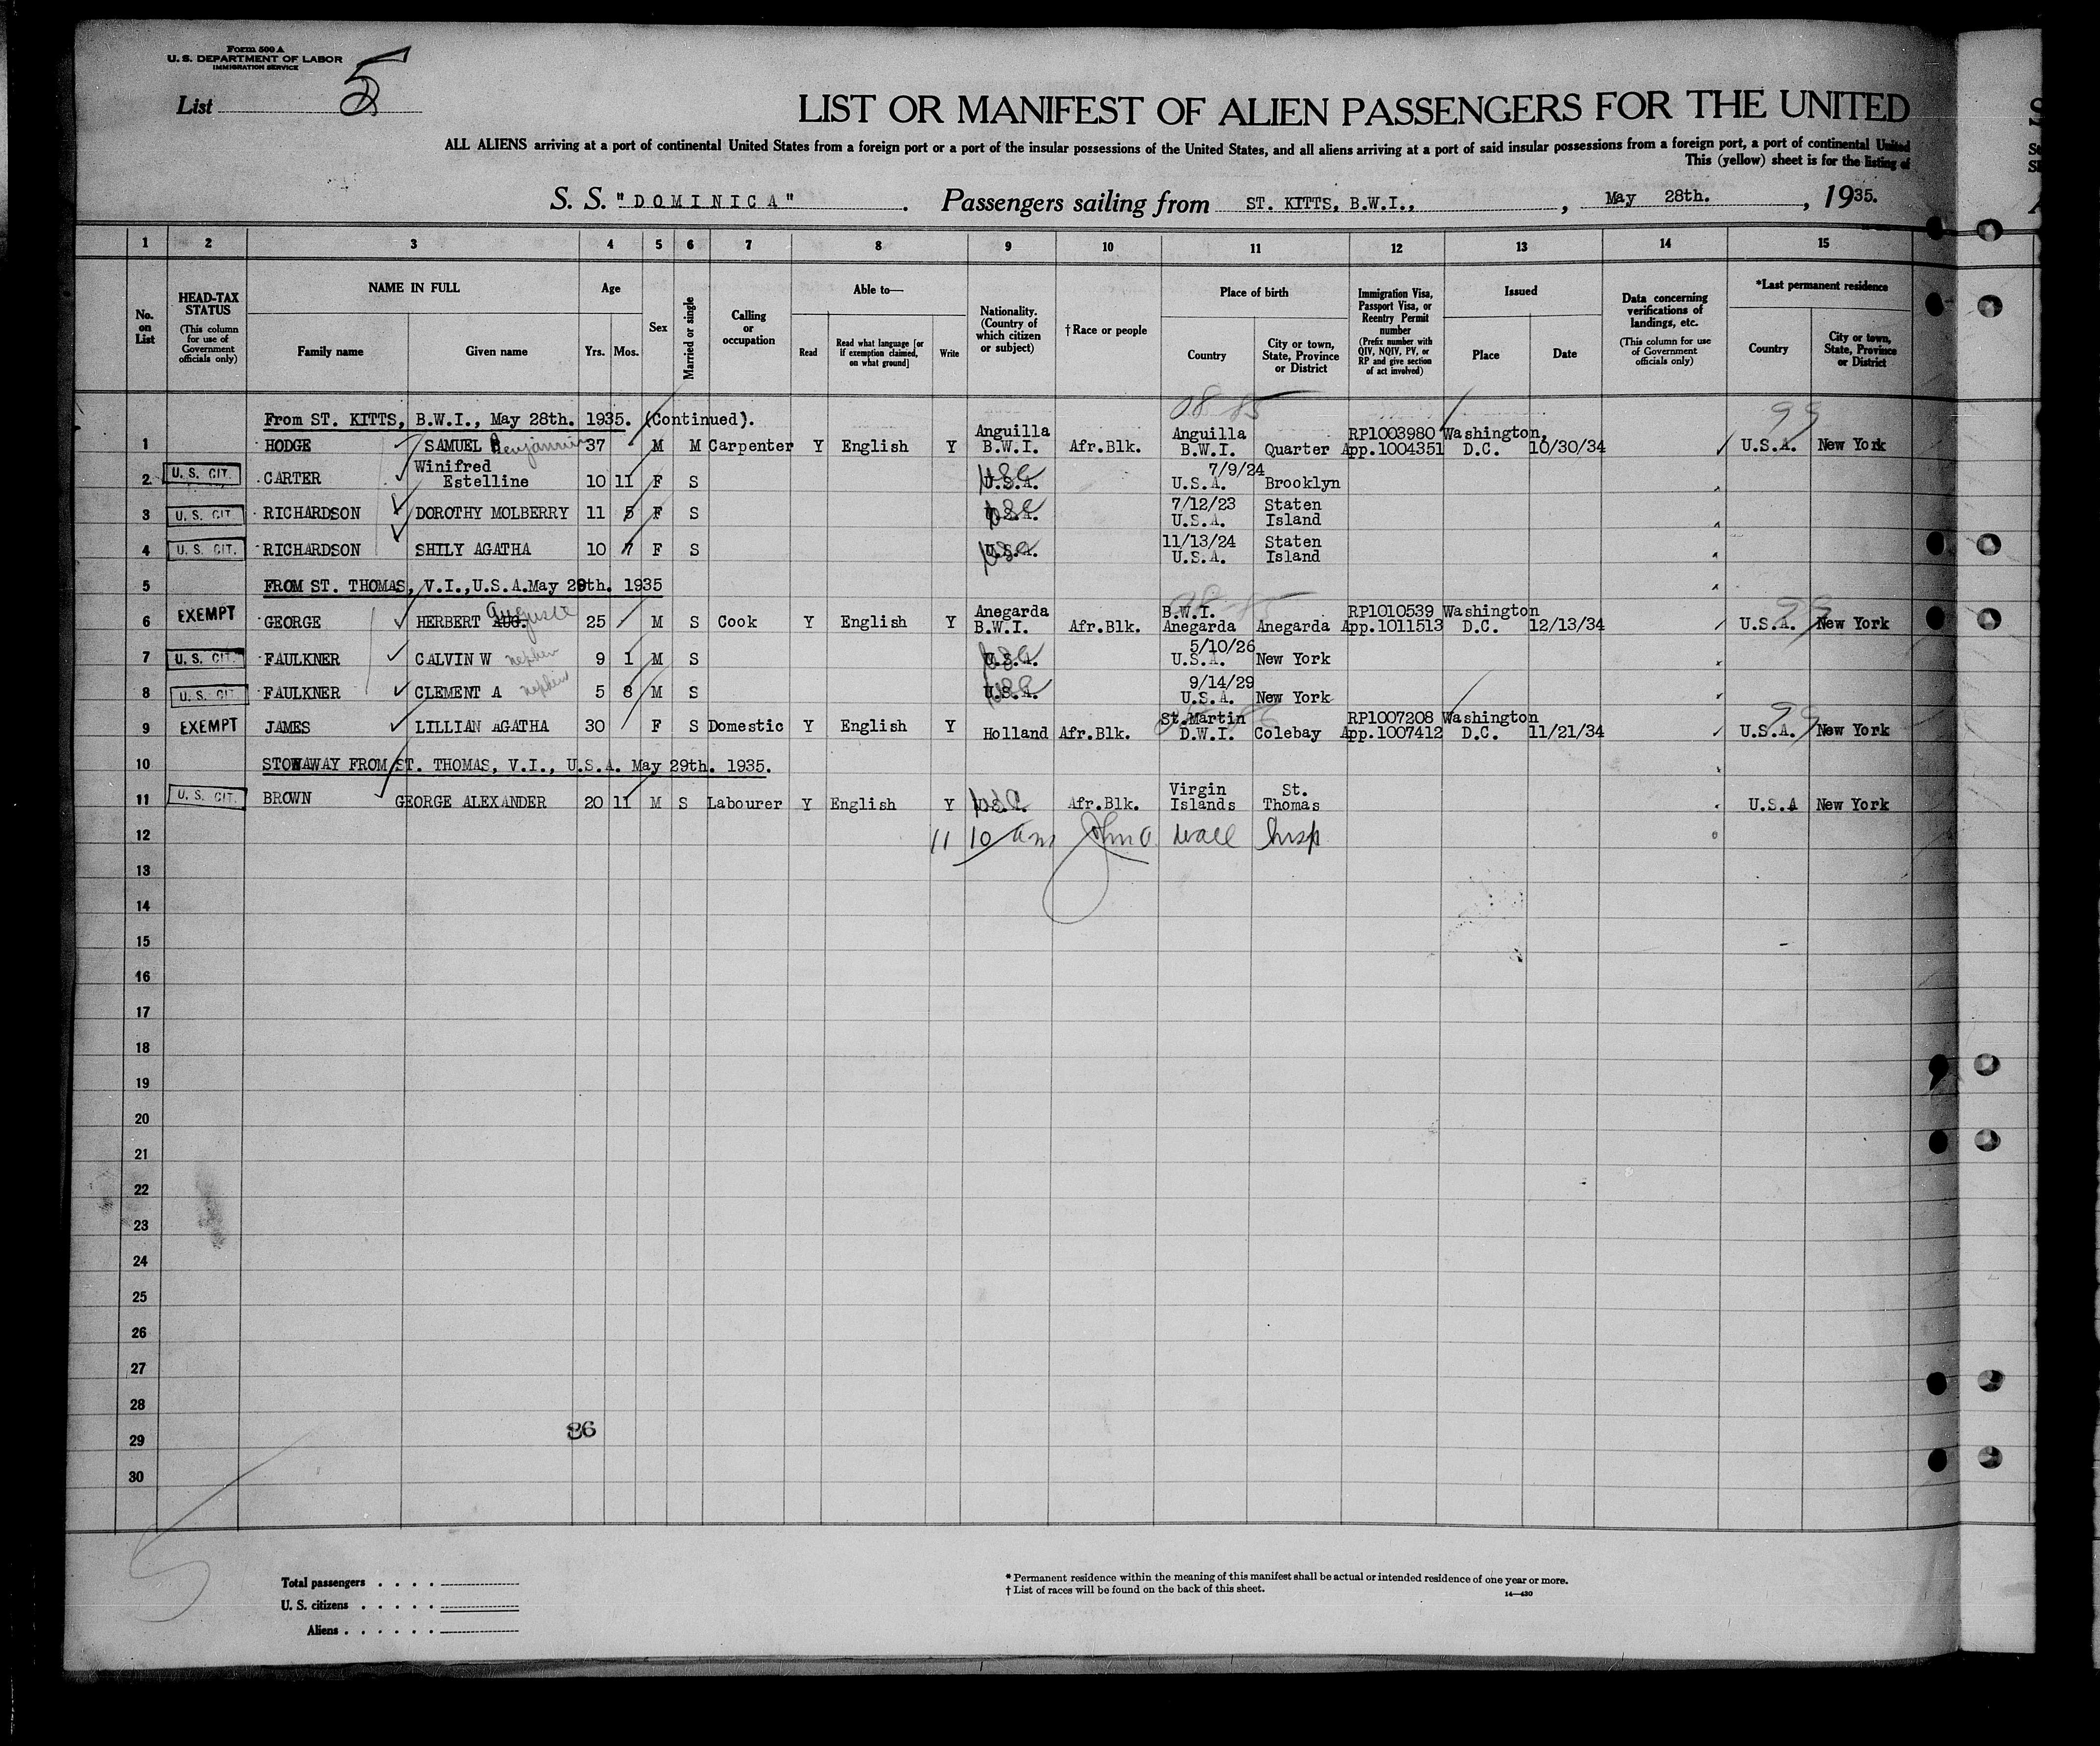 Form 500 A
U. S. DEPARTMENT OF LABOR
IMMIGRATION SERVICE
List 5
LIST OR MANIFEST OF ALIEN PASSENGERS FOR THE UNITED
ALL ALIENS arriving at a port of continental United States from a foreign port or a port of the insular possessions of the United States, and all aliens arriving at a port of said insular possessions from a foreign port, a port of continental United
This (yellow) sheet is for the listing of
S. S. "DOMINICA". Passengers sailing from ST. KITTS, B.W.I., , May 28th. , 1935.
1 2 3 4 5 6 7 8 9 10 11 12 13 14 15
No. on List
HEAD-TAX STATUS (This column for use of Government officials only)
NAME IN FULL
Family name Given name
Age
Yrs. Mos.
Sex
Married or single
Calling or occupation
Able to—
Read
Read what language [or if exemption claimed, on what ground]
Write
Nationality. (Country of which citizen or subject)
†Race or people
Place of birth
Country
City or town, State, Province or District
Immigration Visa, Passport Visa, or Reentry Permit number (Prefix number with QIV, NQIV, PV, or RP and give section of act involved)
Issued
Place Date
Data concerning verifications of landings, etc. (This column for use of Government officials only)
*Last permanent residence
Country
City or town, State, Province or District
From ST. KITTS, B.W.I., May 28th. 1935. (Continued).
08 85 99
1 HODGE SAMUEL Benjamin 37 M M Carpenter Y English Y Anguilla B.W.I. Afr.Blk. Anguilla B.W.I. Quarter RP1003980 App.1004351 Washington, D.C. 10/30/34 U.S.A. New York
2 U. S. CIT. CARTER Winifred Estelline 10 11 F S U.S.A. 7/9/24 U.S.A. Brooklyn
3 U. S. CIT. RICHARDSON DOROTHY MOLBERRY 11 5 F S U.S.A. 7/12/23 U.S.A. Staten Island
4 U. S. CIT. RICHARDSON SHILY AGATHA 10 7 F S U.S.A. 11/13/24 U.S.A. Staten Island
5 FROM ST. THOMAS, V.I., U.S.A. May 29th. 1935
6 EXEMPT GEORGE HERBERT AUG. Auguste 25 M S Cook Y English Y Anegarda B.W.I. Afr.Blk. B.W.I. Anegarda Anegarda RP1010539 App.1011513 Washington D.C. 12/13/34 U.S.A. New York
7 U. S. CIT. FAULKNER CALVIN W nephew 9 1 M S U.S.A. 5/10/26 U.S.A. New York
8 U. S. CIT FAULKNER CLEMENT A nephew 5 8 M S U.S.A. 9/14/29 U.S.A. New York
9 EXEMPT JAMES LILLIAN AGATHA 30 F S Domestic Y English Y Holland Afr.Blk. St.Martin D.W.I. Colebay RP1007208 App.1007412 Washington D.C. 11/21/34 U.S.A. New York
10 STOWAWAY FROM ST. THOMAS, V.I., U.S.A. May 29th. 1935.
11 U. S. CIT. BROWN GEORGE ALEXANDER 20 11 M S Labourer Y English Y U.S.A. Afr.Blk. Virgin Islands St. Thomas U.S.A New York
12 11 10 am John A Wall Insp
13
14
15
16
17
18
19
20
21
22
23
24
25
26
27
28
86
29
30
Total passengers
U. S. citizens
Aliens
* Permanent residence within the meaning of this manifest shall be actual or intended residence of one year or more.
† List of races will be found on the back of this sheet.
14—430